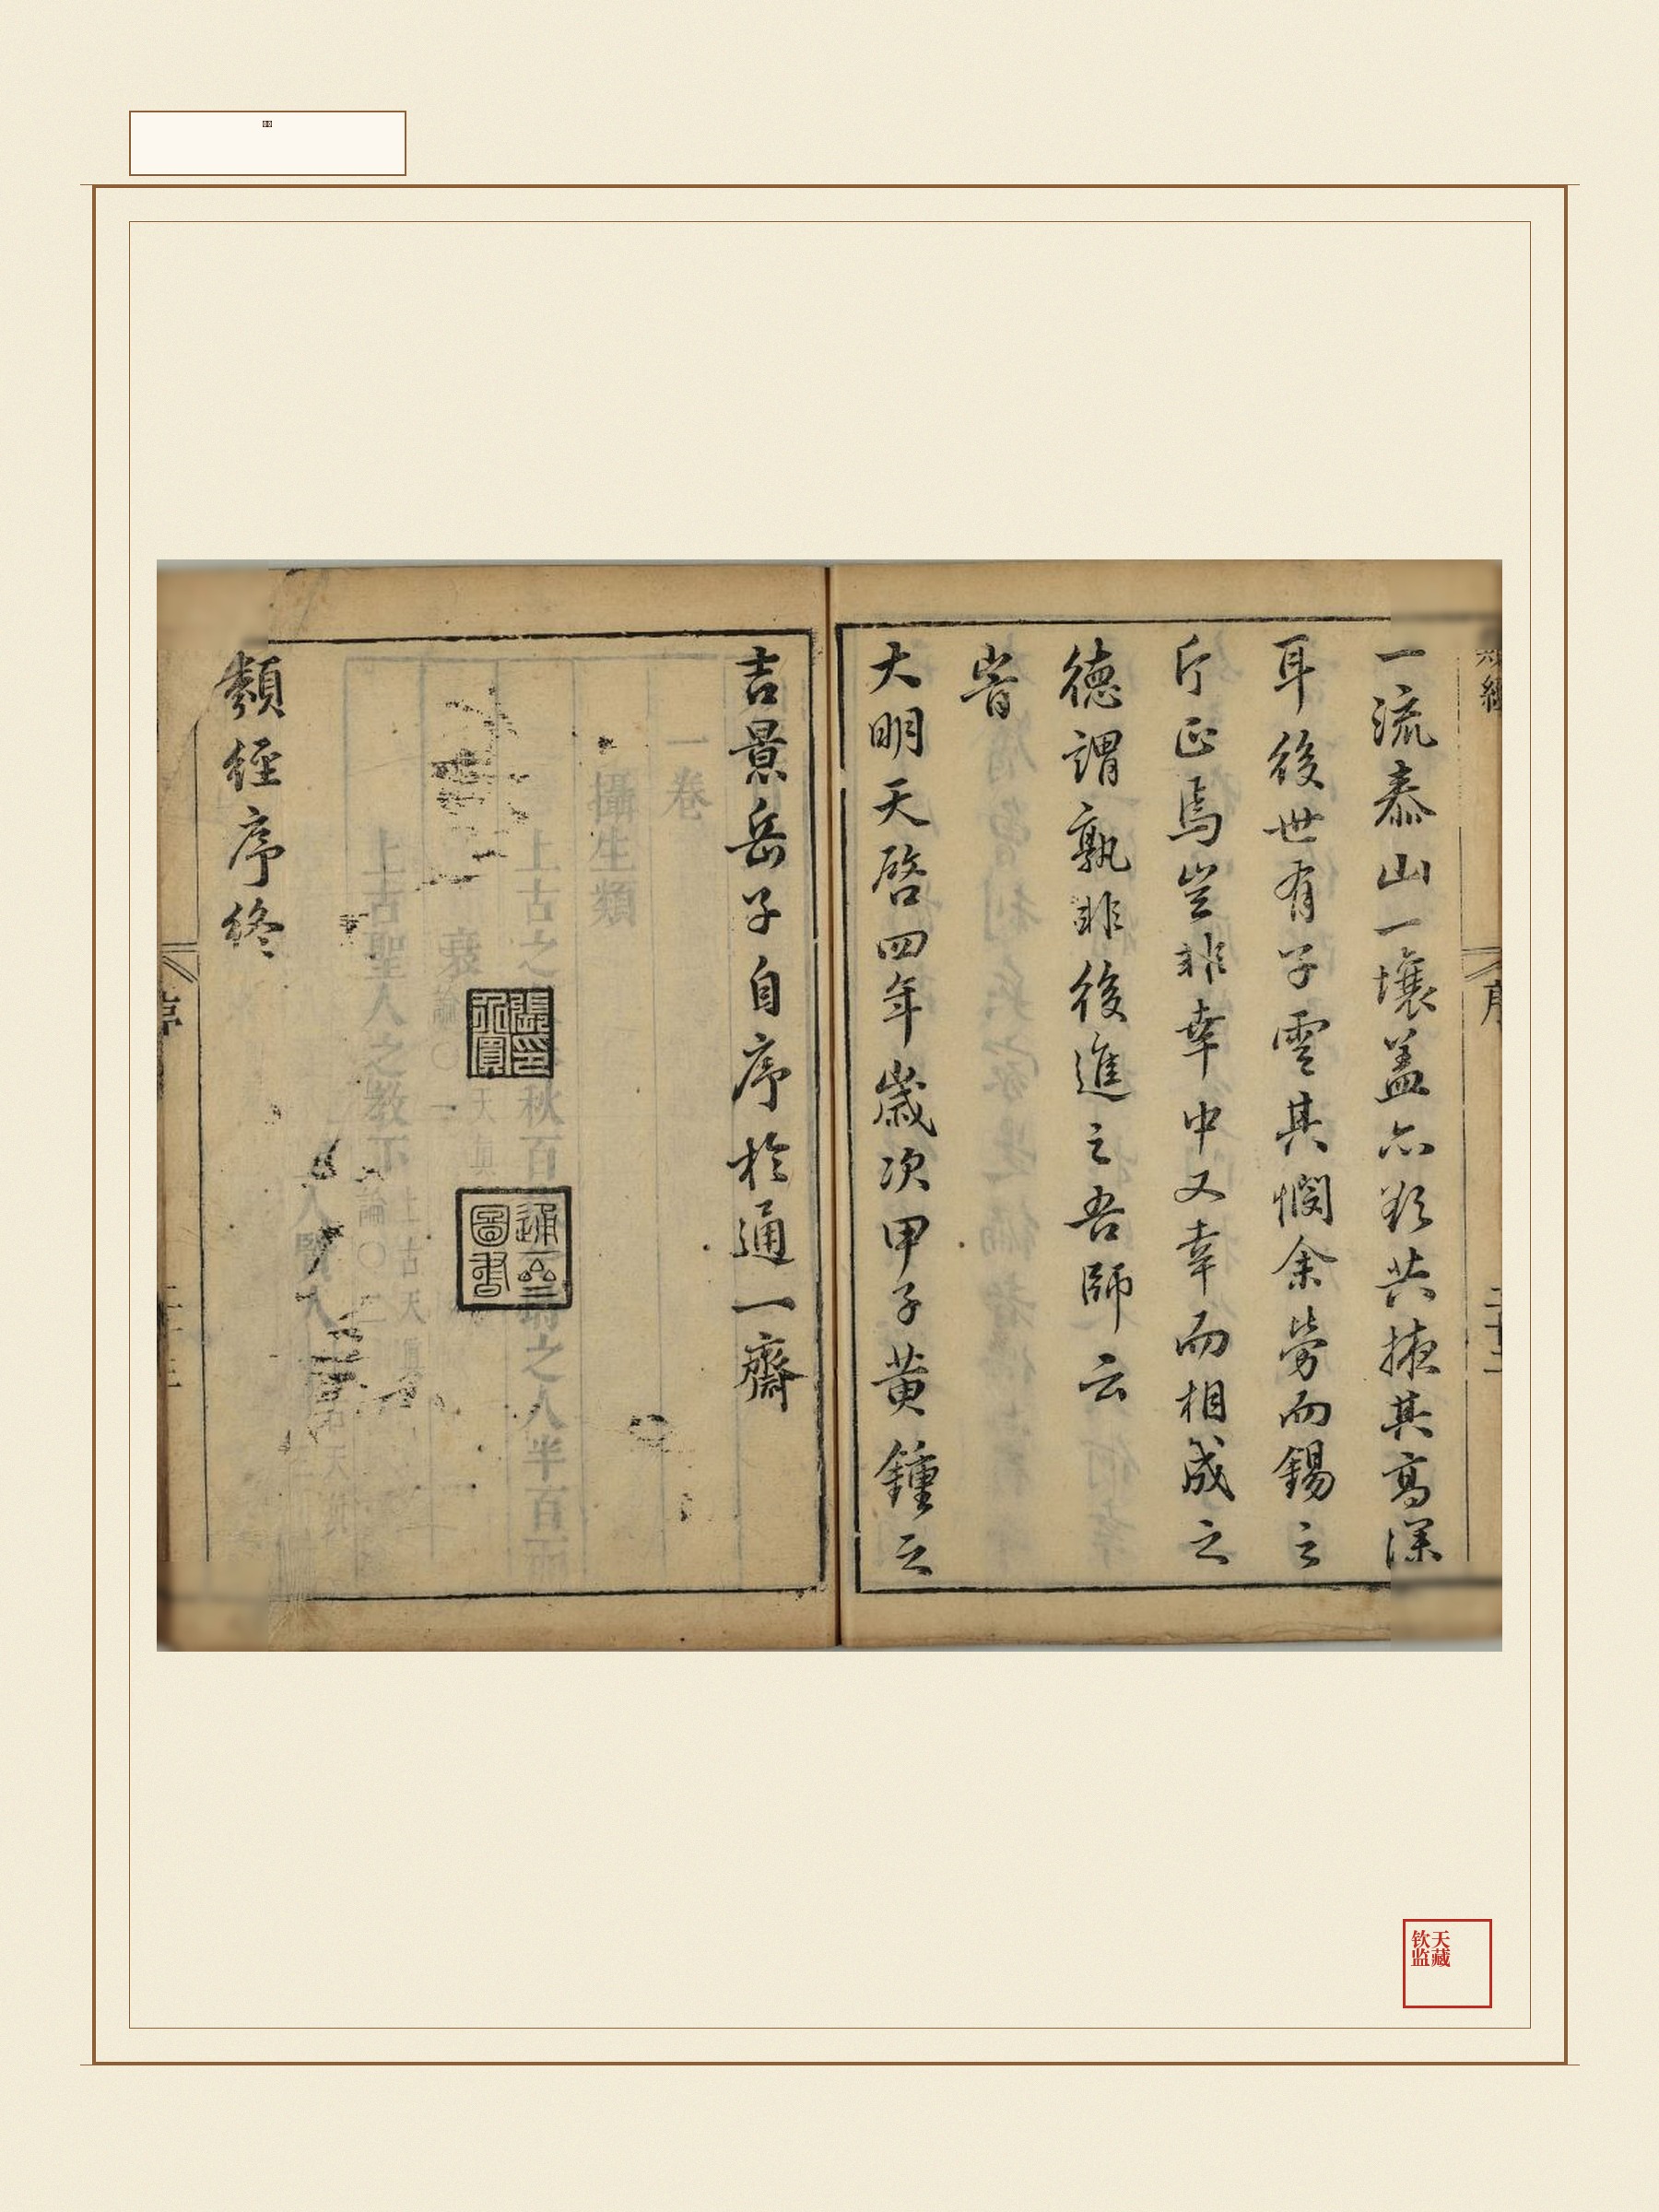 序
一流泰山一壤盖亦欲共掖其高深
耳後世有子雲其憫余勞而錫之
斤正焉豈非幸中又幸而相成之
德謂孰非後進之吾師云
旹
大明天啓四年歲次甲子黄鍾之
吉景岳子自序於通一齋
張印介賓
通一齋圖書
類經序終
钦天
监藏